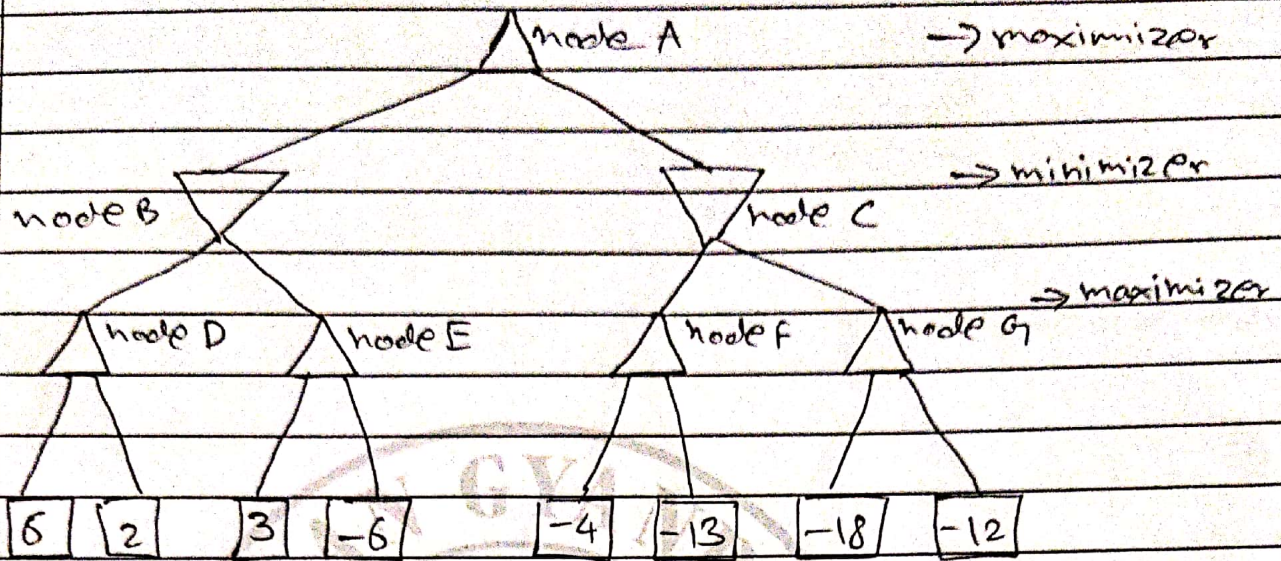 node A → maximizer
→ minimizer
node B node C
→ maximizer
node D node E node F node G
6 2 3 -6 -4 -13 -18 -12